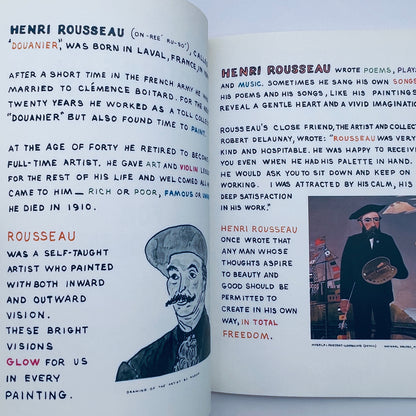 HENRI ROUSSEAU (ON-REE' RU-SO'), CALLED
"DOUANIER", WAS BORN IN LAVAL, FRANCE, IN
AFTER A SHORT TIME IN THE FRENCH ARMY HE
MARRIED TO CLÉMENCE BOITARD. FOR THE
TWENTY YEARS HE WORKED AS A TOLL COLL
"DOUANIER" BUT ALSO FOUND TIME TO PAINT.
AT THE AGE OF FORTY HE RETIRED TO BECOME
FULL-TIME ARTIST. HE GAVE ART AND VIOLIN
FOR THE REST OF HIS LIFE AND WELCOMED ALL
CAME TO HIM — RICH OR POOR, FAMOUS OR
HE DIED IN 1910.
ROUSSEAU
WAS A SELF-TAUGHT
ARTIST WHO PAINTED
WITH BOTH INWARD
AND OUTWARD
VISION.
THESE BRIGHT
VISIONS
GLOW FOR US
IN EVERY
PAINTING.
DRAWING OF THE ARTIST BY
HENRI ROUSSEAU WROTE POEMS, PLAY
AND MUSIC. SOMETIMES HE SANG HIS OWN SONGS
HIS POEMS AND HIS SONGS, LIKE HIS PAINTINGS
REVEAL A GENTLE HEART AND A VIVID IMAGINATI
ROUSSEAU'S CLOSE FRIEND, THE ARTIST AND COLLECT
ROBERT DELAUNAY, WROTE: "ROUSSEAU WAS VERY
KIND AND HOSPITABLE. HE WAS HAPPY TO RECEIVE
YOU EVEN WHEN HE HAD HIS PALETTE IN HAND.
HE WOULD ASK YOU TO SIT DOWN AND KEEP ON
WORKING. I WAS ATTRACTED BY HIS CALM, HIS
DEEP SATISFACTION
IN HIS WORK."
HENRI ROUSSEAU
ONCE WROTE THAT
ANY MAN WHOSE
THOUGHTS ASPIRE
TO BEAUTY AND
GOOD SHOULD BE
PERMITTED TO
CREATE IN HIS OWN
WAY, IN TOTAL
FREEDOM.